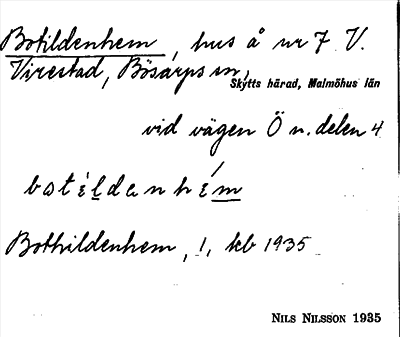 Botildenhem, hus å nr 7 V.
Virestad, Bösarps sn,
Skytts härad, Malmöhus län
vid vägen Ö n. delen 4
botéldanhém
Bothildenhem, 1, kb 1935
NILS NILSSON 1935